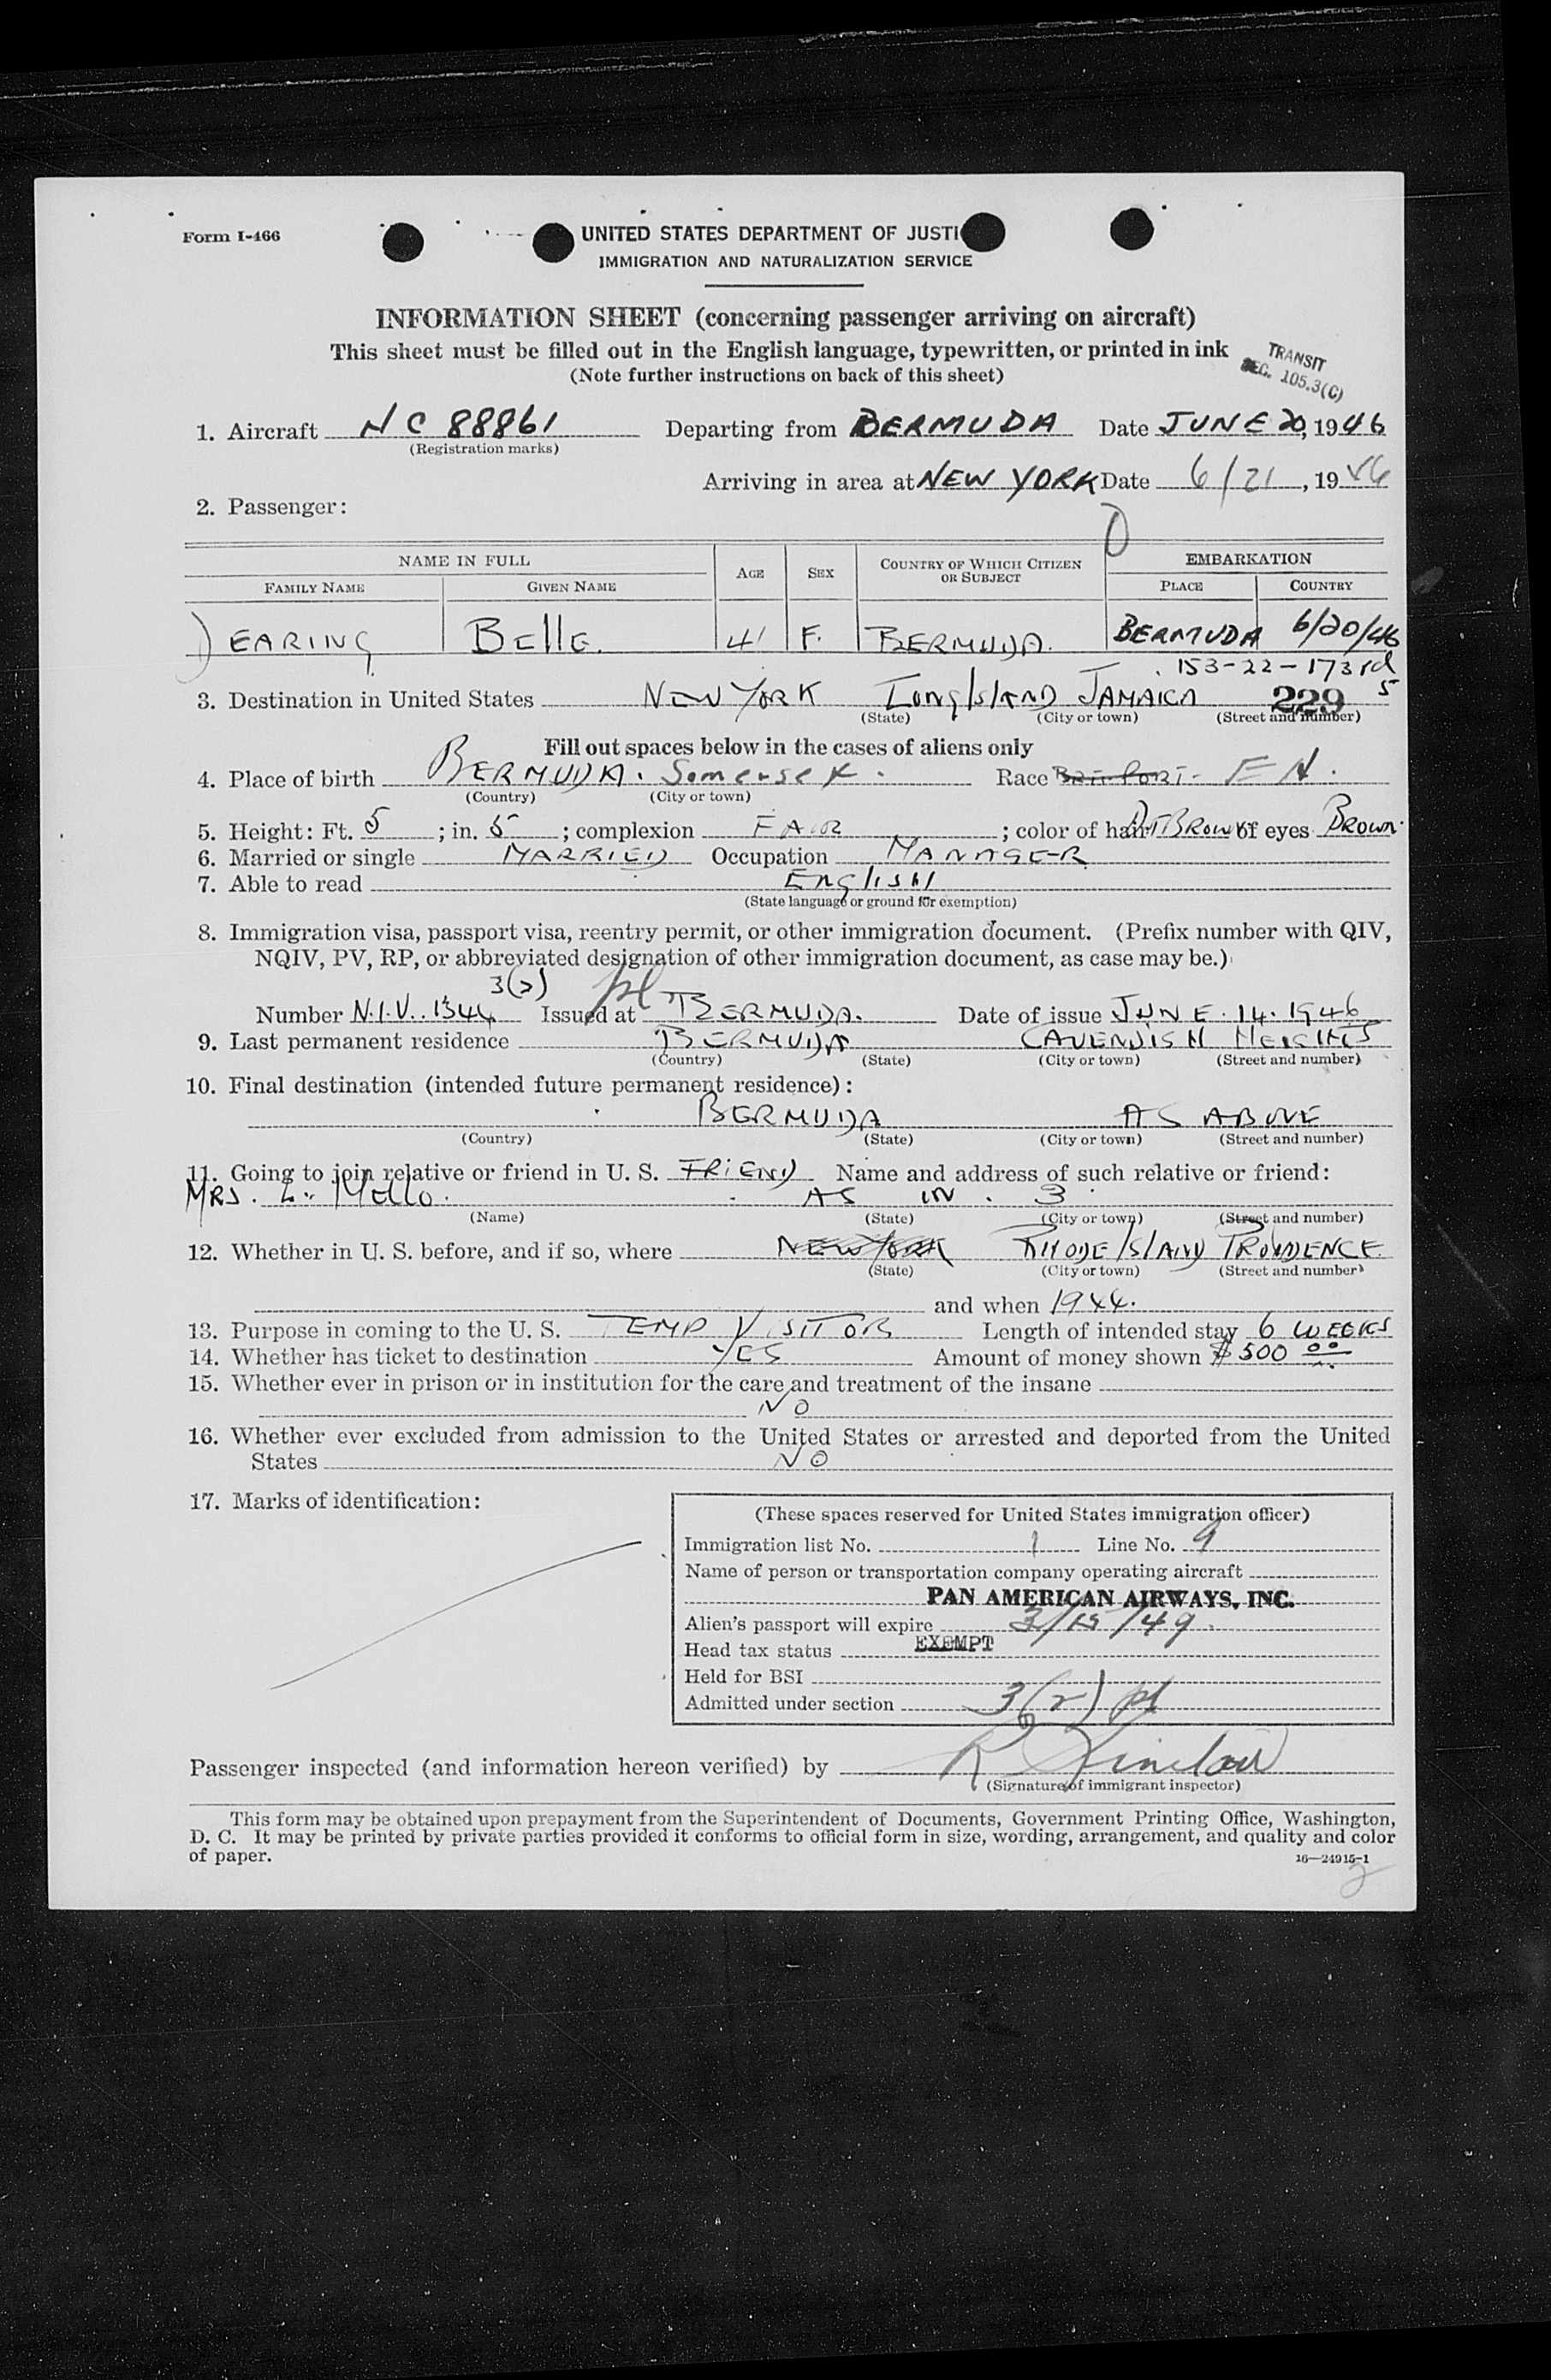 Form I-466
UNITED STATES DEPARTMENT OF JUSTI
IMMIGRATION AND NATURALIZATION SERVICE
INFORMATION SHEET (concerning passenger arriving on aircraft)
This sheet must be filled out in the English language, typewritten, or printed in ink
(Note further instructions on back of this sheet)
TRANSIT
SEC. 105.3(C)
1. Aircraft NC 88861 Departing from BERMUDA Date JUNE 20, 1946
(Registration marks)
Arriving in area at NEW YORK Date 6/21, 1946
2. Passenger:
NAME IN FULL AGE SEX COUNTRY OF WHICH CITIZEN OR SUBJECT EMBARKATION
FAMILY NAME GIVEN NAME PLACE COUNTRY
DEARING BELLE. 41 F. BERMUDA. BERMUDA 6/20/46
153-22-173rd
3. Destination in United States NEW YORK LONG ISLAND JAMAICA 229 5
(State) (City or town) (Street and number)
Fill out spaces below in the cases of aliens only
4. Place of birth BERMUDA. Somerset. Race EN.
(Country) (City or town)
5. Height: Ft. 5; in. 5; complexion FAIR; color of hair BROWN of eyes BROWN.
6. Married or single MARRIED Occupation MANAGER
7. Able to read English
(State language or ground for exemption)
8. Immigration visa, passport visa, reentry permit, or other immigration document. (Prefix number with QIV,
NQIV, PV, RP, or abbreviated designation of other immigration document, as case may be.)
3(2) pl
Number N.I.V. 1344 Issued at BERMUDA. Date of issue JUNE. 14. 1946
9. Last permanent residence BERMUDA CAVENDISH HEIGHTS
(Country) (State) (City or town) (Street and number)
10. Final destination (intended future permanent residence):
BERMUDA AS ABOVE
(Country) (State) (City or town) (Street and number)
11. Going to join relative or friend in U. S. FRIEND Name and address of such relative or friend:
MRS. L. Mello. AS IN. 3.
(Name) (State) (City or town) (Street and number)
12. Whether in U. S. before, and if so, where NEW YORK RHODE ISLAND PROVIDENCE.
(State) (City or town) (Street and number)
and when 1944.
13. Purpose in coming to the U. S. TEMP VISITOR Length of intended stay 6 WEEKS
14. Whether has ticket to destination YES Amount of money shown $500 00
15. Whether ever in prison or in institution for the care and treatment of the insane
NO
16. Whether ever excluded from admission to the United States or arrested and deported from the United
States NO
17. Marks of identification:
(These spaces reserved for United States immigration officer)
Immigration list No. 1 Line No. 9
Name of person or transportation company operating aircraft
PAN AMERICAN AIRWAYS, INC.
Alien's passport will expire 3/15/49.
Head tax status EXEMPT
Held for BSI
Admitted under section 3(2) pl
Passenger inspected (and information hereon verified) by R Sinclair
(Signature of immigrant inspector)
This form may be obtained upon prepayment from the Superintendent of Documents, Government Printing Office, Washington,
D. C. It may be printed by private parties provided it conforms to official form in size, wording, arrangement, and quality and color
of paper.
16—24915-1
2